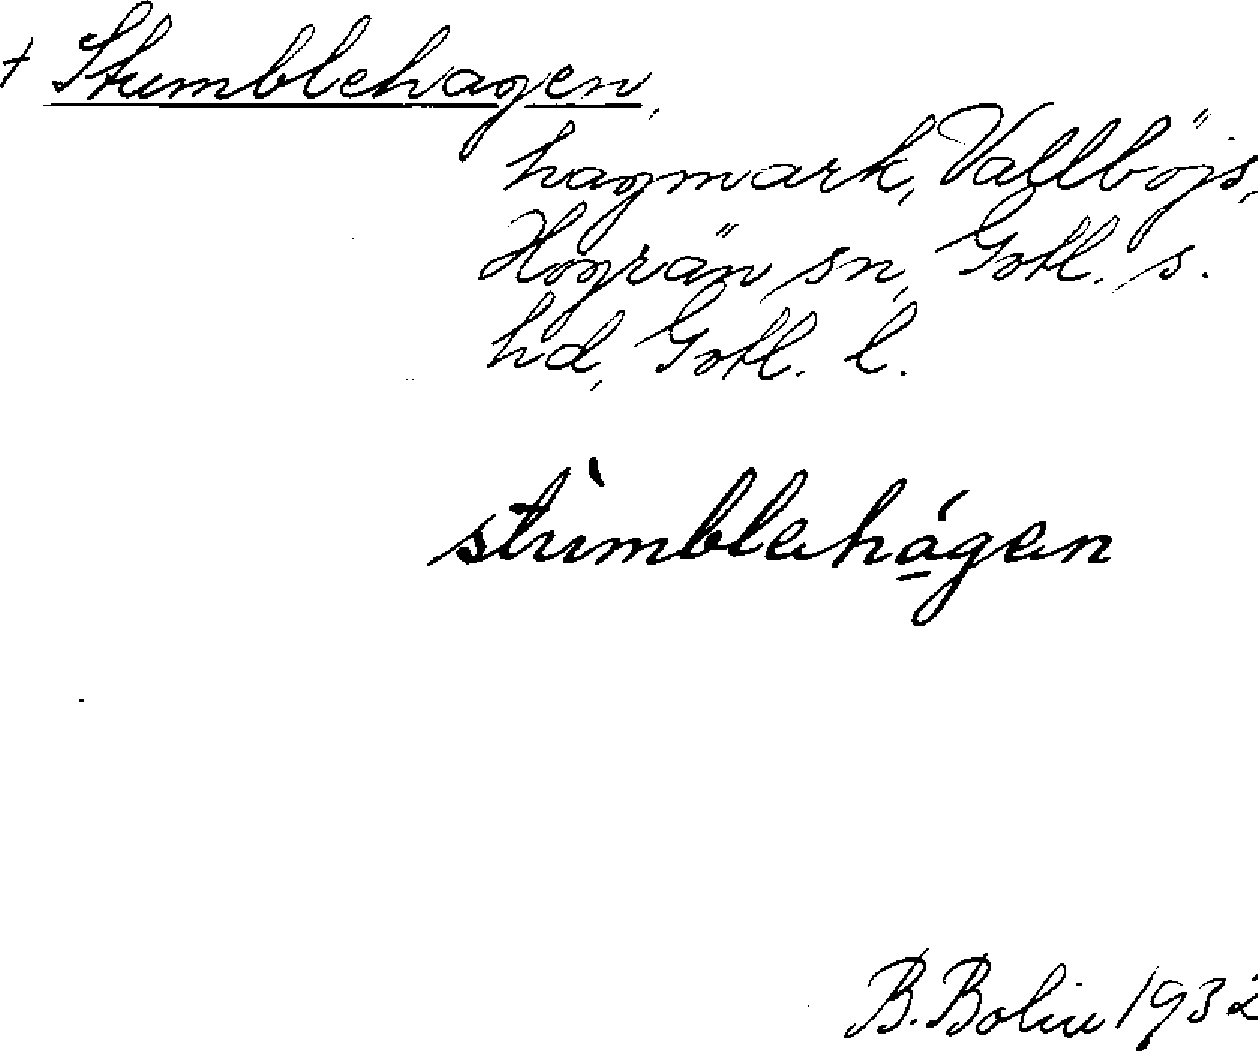 + Stumblehagen,
hagmark, Vallböjs,
Hogrän sn, Gotl. s.
hd, Gotl. l.
stùmblahágan
B. Bolin 1932